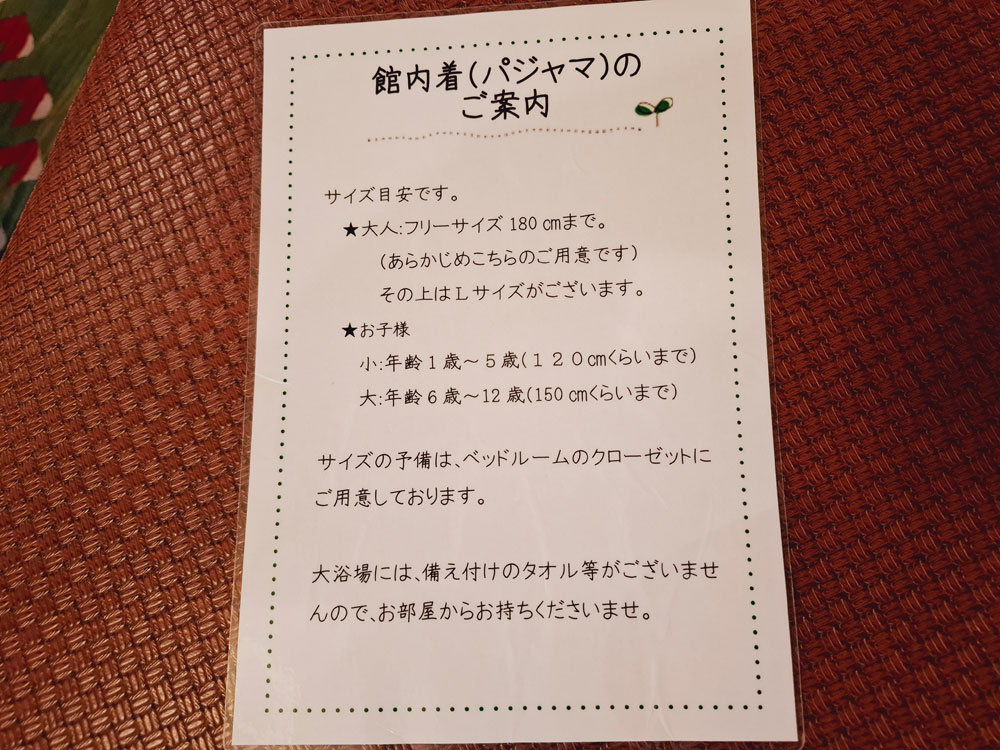 館内着(パジャマ)の
ご案内
サイズ目安です。
★大人:フリーサイズ 180 ㎝まで。
(あらかじめこちらのご用意です)
その上はLサイズがございます。
★お子様
小:年齢1歳～5歳(120㎝くらいまで)
大:年齢6歳～12歳(150㎝くらいまで)
サイズの予備は、ベッドルームのクローゼットに
ご用意しております。
大浴場には、備え付けのタオル等がございませ
んので、お部屋からお持ちくださいませ。